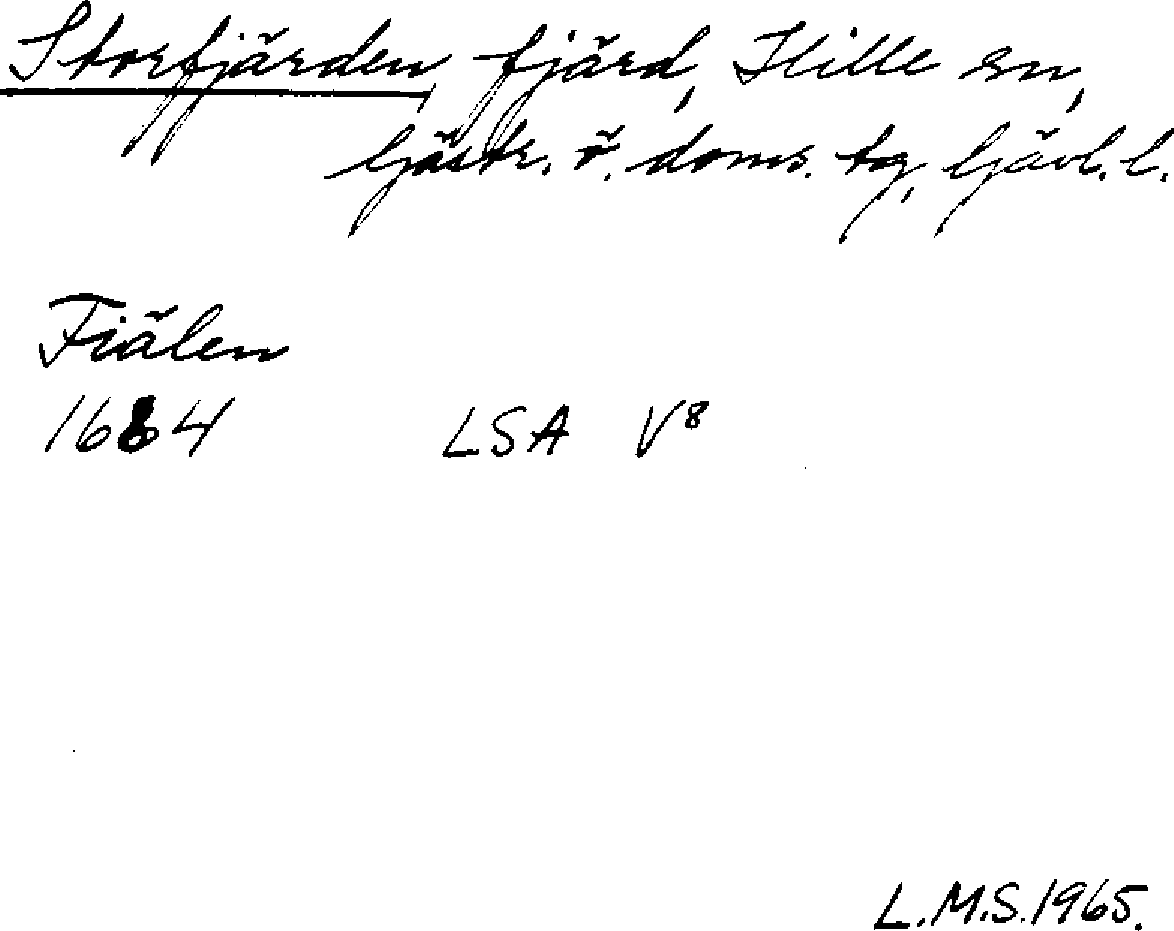 Storfjärden, fjärd, Hille sn,
Gästr. ö. doms. tg, Gävl. l.
Fiälen
1684 LSA V⁸
L.M.S. 1965.